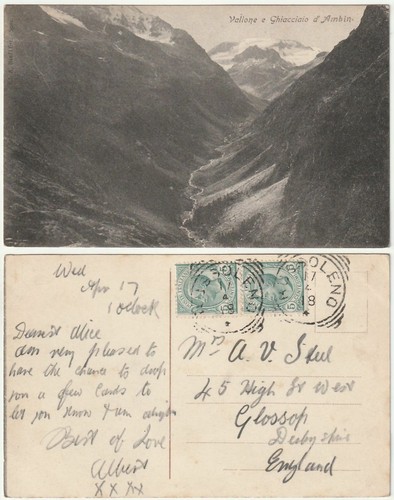 Vallone e Ghiacciaio d'Ambin.
Wed
Apr 17
1 oclock
Dearest Alice
am very pleased to
have the chance to drop
you a few cards to
let you know I am
Best of Love
Albert
X X X X
BUSSOLENO
BUSSOLENO
Mrs A. V. Steel
45 High St West
Glossop
Derbyshire
England